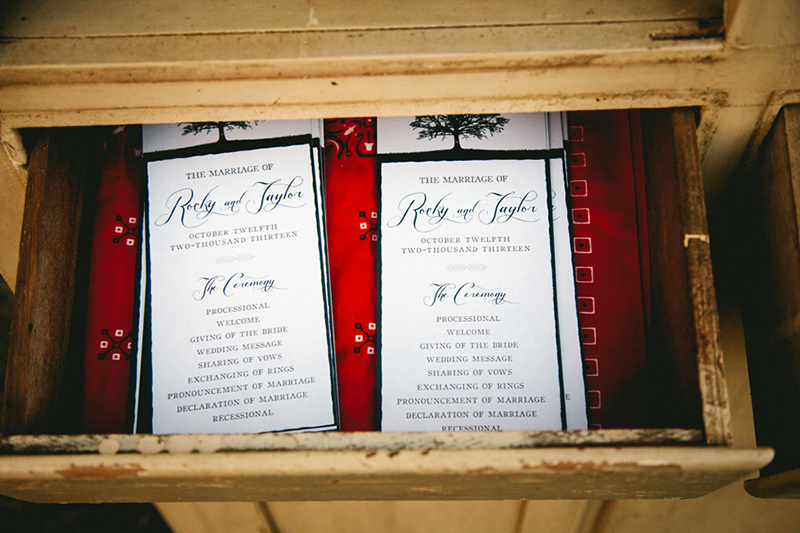 THE MARRIAGE OF
Rocky and Taylor
OCTOBER TWELFTH
TWO-THOUSAND THIRTEEN
The Ceremony
PROCESSIONAL
WELCOME
GIVING OF THE BRIDE
WEDDING MESSAGE
SHARING OF VOWS
EXCHANGING OF RINGS
PRONOUNCEMENT OF MARRIAGE
DECLARATION OF MARRIAGE
RECESSIONAL
THE MARRIAGE OF
Rocky and Taylor
OCTOBER TWELFTH
TWO-THOUSAND THIRTEEN
The Ceremony
PROCESSIONAL
WELCOME
GIVING OF THE BRIDE
WEDDING MESSAGE
SHARING OF VOWS
EXCHANGING OF RINGS
PRONOUNCEMENT OF MARRIAGE
DECLARATION OF MARRIAGE